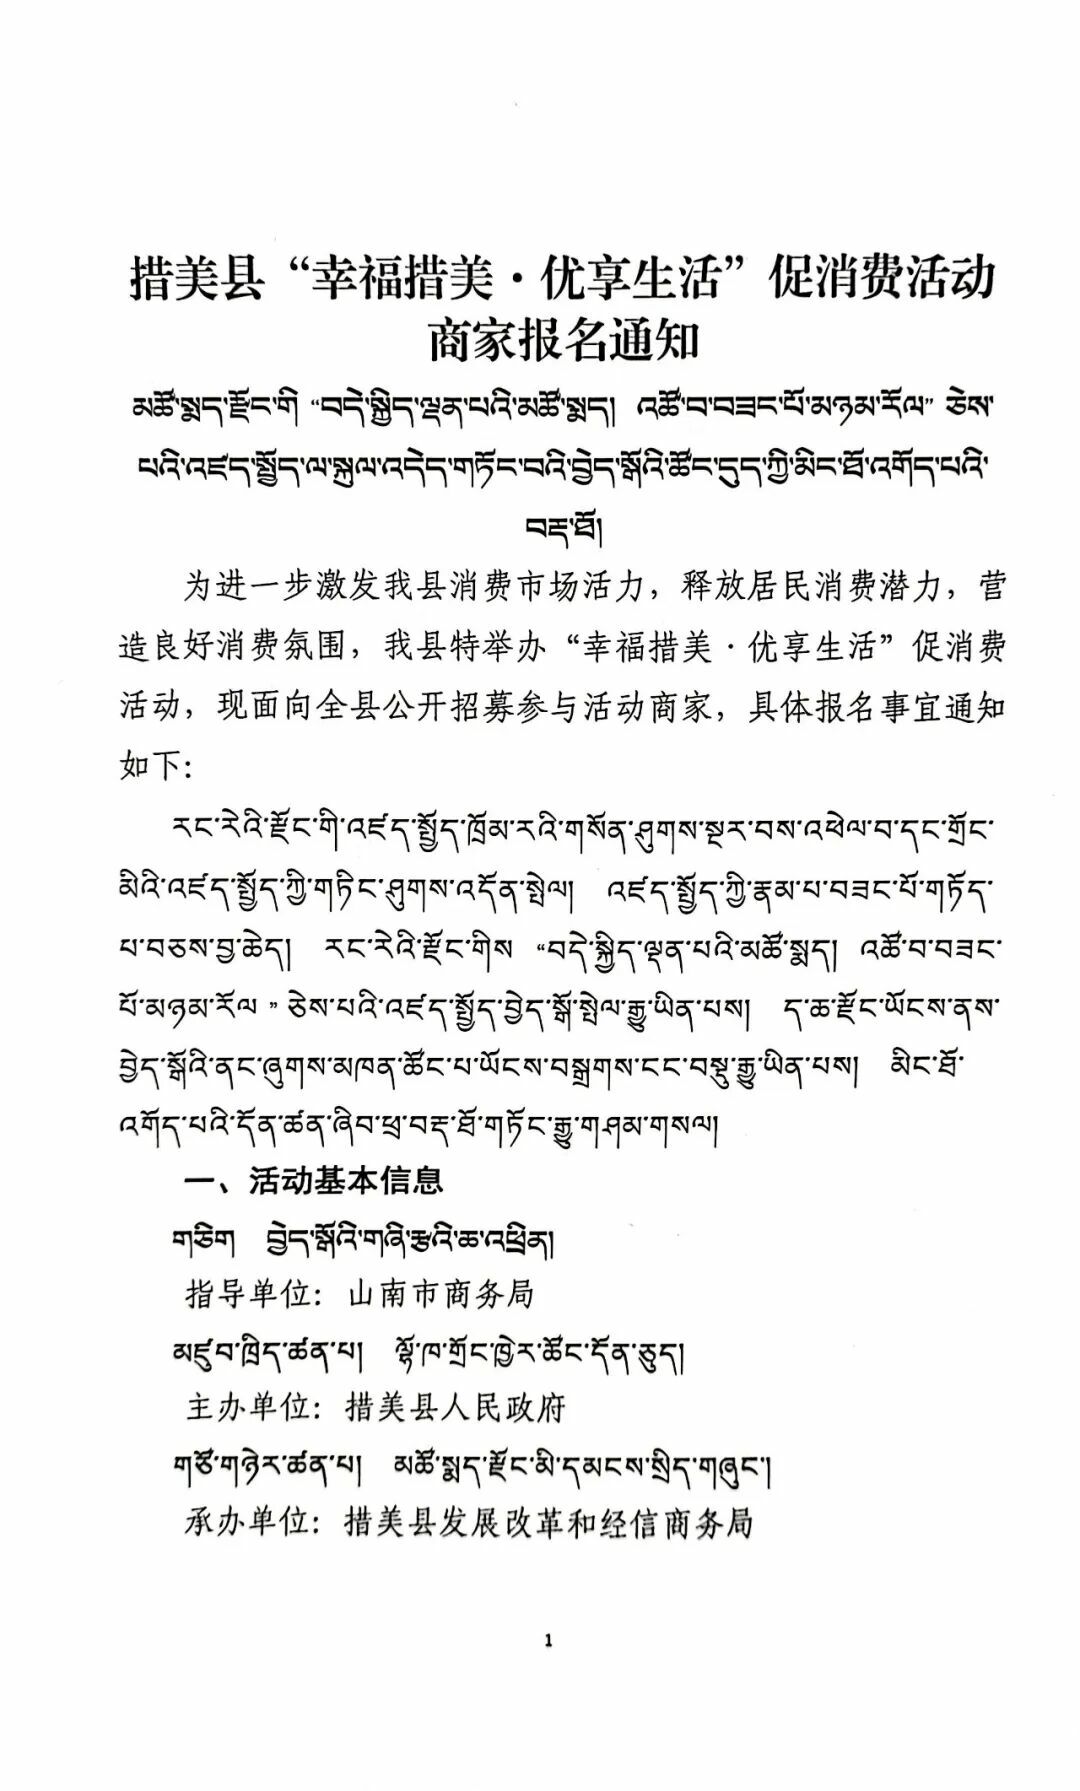 措美县“幸福措美·优享生活”促消费活动
商家报名通知
མཚོ་སྨད་རྫོང་གི “བདེ་སྐྱིད་ལྡན་པའི་མཚོ་སྨད། འཚོ་བ་བཟང་པོ་མཉམ་རོལ” ཅེས་
པའི་འཛད་སྤྱོད་ལ་སྐུལ་འདེད་གཏོང་བའི་བྱེད་སྒོའི་ཚོང་དུད་ཀྱི་མིང་ཐོ་འགོད་པའི་
བརྡ་ཐོ།
为进一步激发我县消费市场活力，释放居民消费潜力，营
造良好消费氛围，我县特举办“幸福措美·优享生活”促消费
活动，现面向全县公开招募参与活动商家，具体报名事宜通知
如下：
རང་རེའི་རྫོང་གི་འཛད་སྤྱོད་ཁྲོམ་རའི་གསོན་ཤུགས་སྔར་བས་འཕེལ་བ་དང་གྲོང་
མིའི་འཛད་སྤྱོད་ཀྱི་གཏིང་ཤུགས་འདོན་སྤེལ། འཛད་སྤྱོད་ཀྱི་རྣམ་པ་བཟང་པོ་གཏོད་
པ་བཅས་བྱ་ཆེད། རང་རེའི་རྫོང་གིས “བདེ་སྐྱིད་ལྡན་པའི་མཚོ་སྨད། འཚོ་བ་བཟང་
པོ་མཉམ་རོལ ” ཅེས་པའི་འཛད་སྤྱོད་བྱེད་སྒོ་སྤེལ་རྒྱུ་ཡིན་པས། ད་ཆ་རྫོང་ཡོངས་ནས་
བྱེད་སྒོའི་ནང་ཞུགས་མཁན་ཚོང་པ་ཡོངས་བསྒྲགས་ངང་བསྡུ་རྒྱུ་ཡིན་པས། མིང་ཐོ་
འགོད་པའི་དོན་ཚན་ཞིབ་ཕྲ་བརྡ་ཐོ་གཏོང་རྒྱུ་གཤམ་གསལ།
一、活动基本信息
གཅིག བྱེད་སྒོའི་གཞི་རྩའི་ཆ་འཕྲིན།
指导单位：山南市商务局
མཛུབ་ཁྲིད་ཚན་པ། ལྷོ་ཁ་གྲོང་ཁྱེར་ཚོང་དོན་ཅུད།
主办单位：措美县人民政府
གཙོ་གཉེར་ཚན་པ། མཚོ་སྨད་རྫོང་མི་དམངས་སྲིད་གཞུང་།
承办单位：措美县发展改革和经信商务局
1